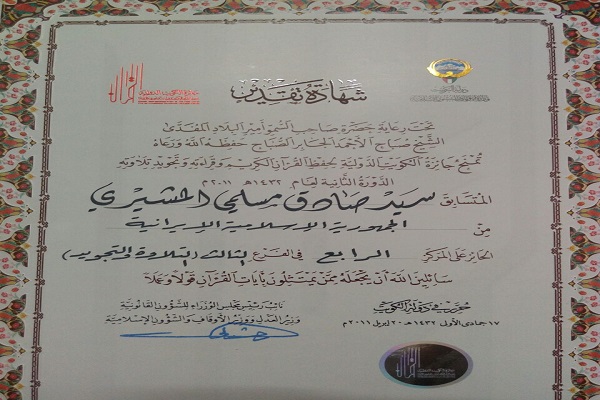 شهادة تقدير
تحت رعاية حضرة صاحب السمو أمير البلاد المفدى
الشيخ صباح الأحمد الجابر الصباح حفظه الله ورعاه
تمنح جائزة الكويت الدولية لحفظ القرآن الكريم وقراءته وتجويد تلاوته
الدورة الثانية لعام ١٤٣٢هـ ٢٠١١م
المتسابق سيد صادق مسلمي
من الجمهورية الإسلامية الإيرانية
الحائز على المركز الرابع في الفرع الثالث (التلاوة والتجويد)
سائلين الله أن يجعله ممن يمتثلون بآيات القرآن قولا وعملا
حرر في دولة الكويت
١٧ جمادى الأولى ١٤٣٢هـ ٢٠ ابريل ٢٠١١م
نائب رئيس مجلس الوزراء للشؤون القانونية
وزير العدل ووزير الأوقاف والشؤون الإسلامية